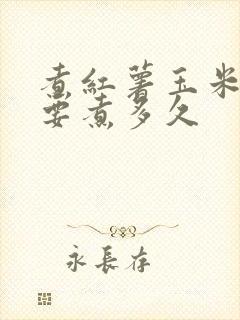 煮紅薯玉米
要煮多久
永長存